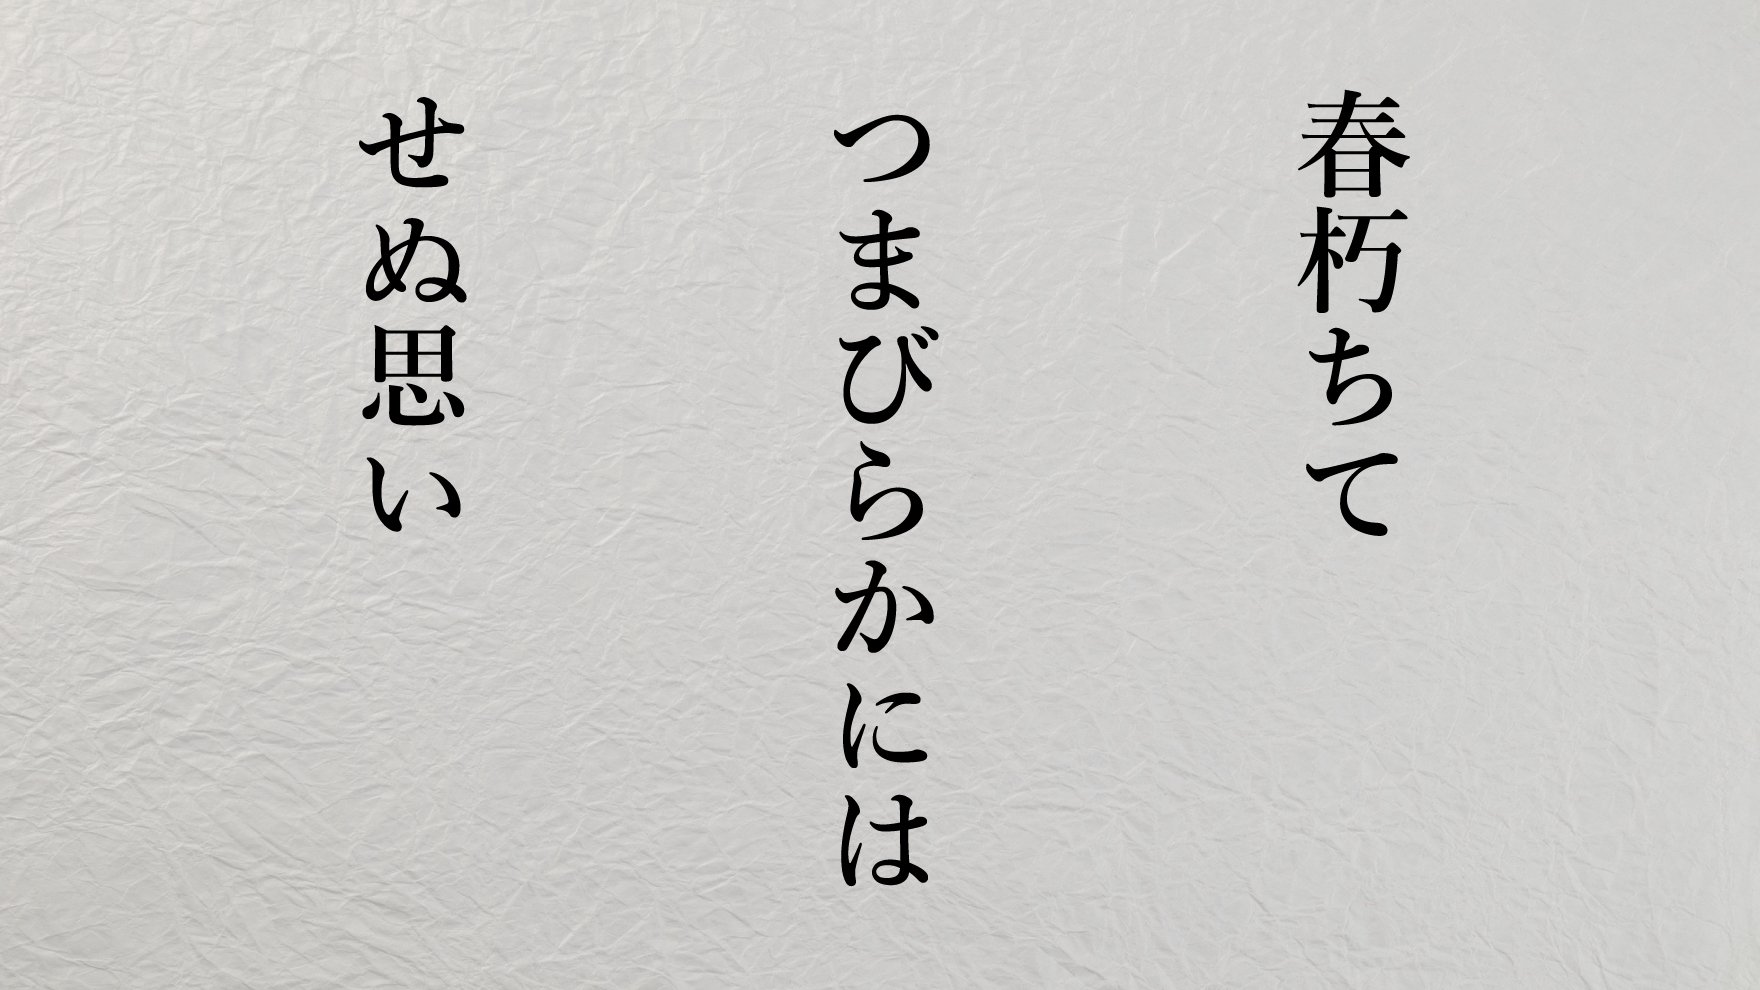 春朽ちて
つまびらかには
せぬ思い